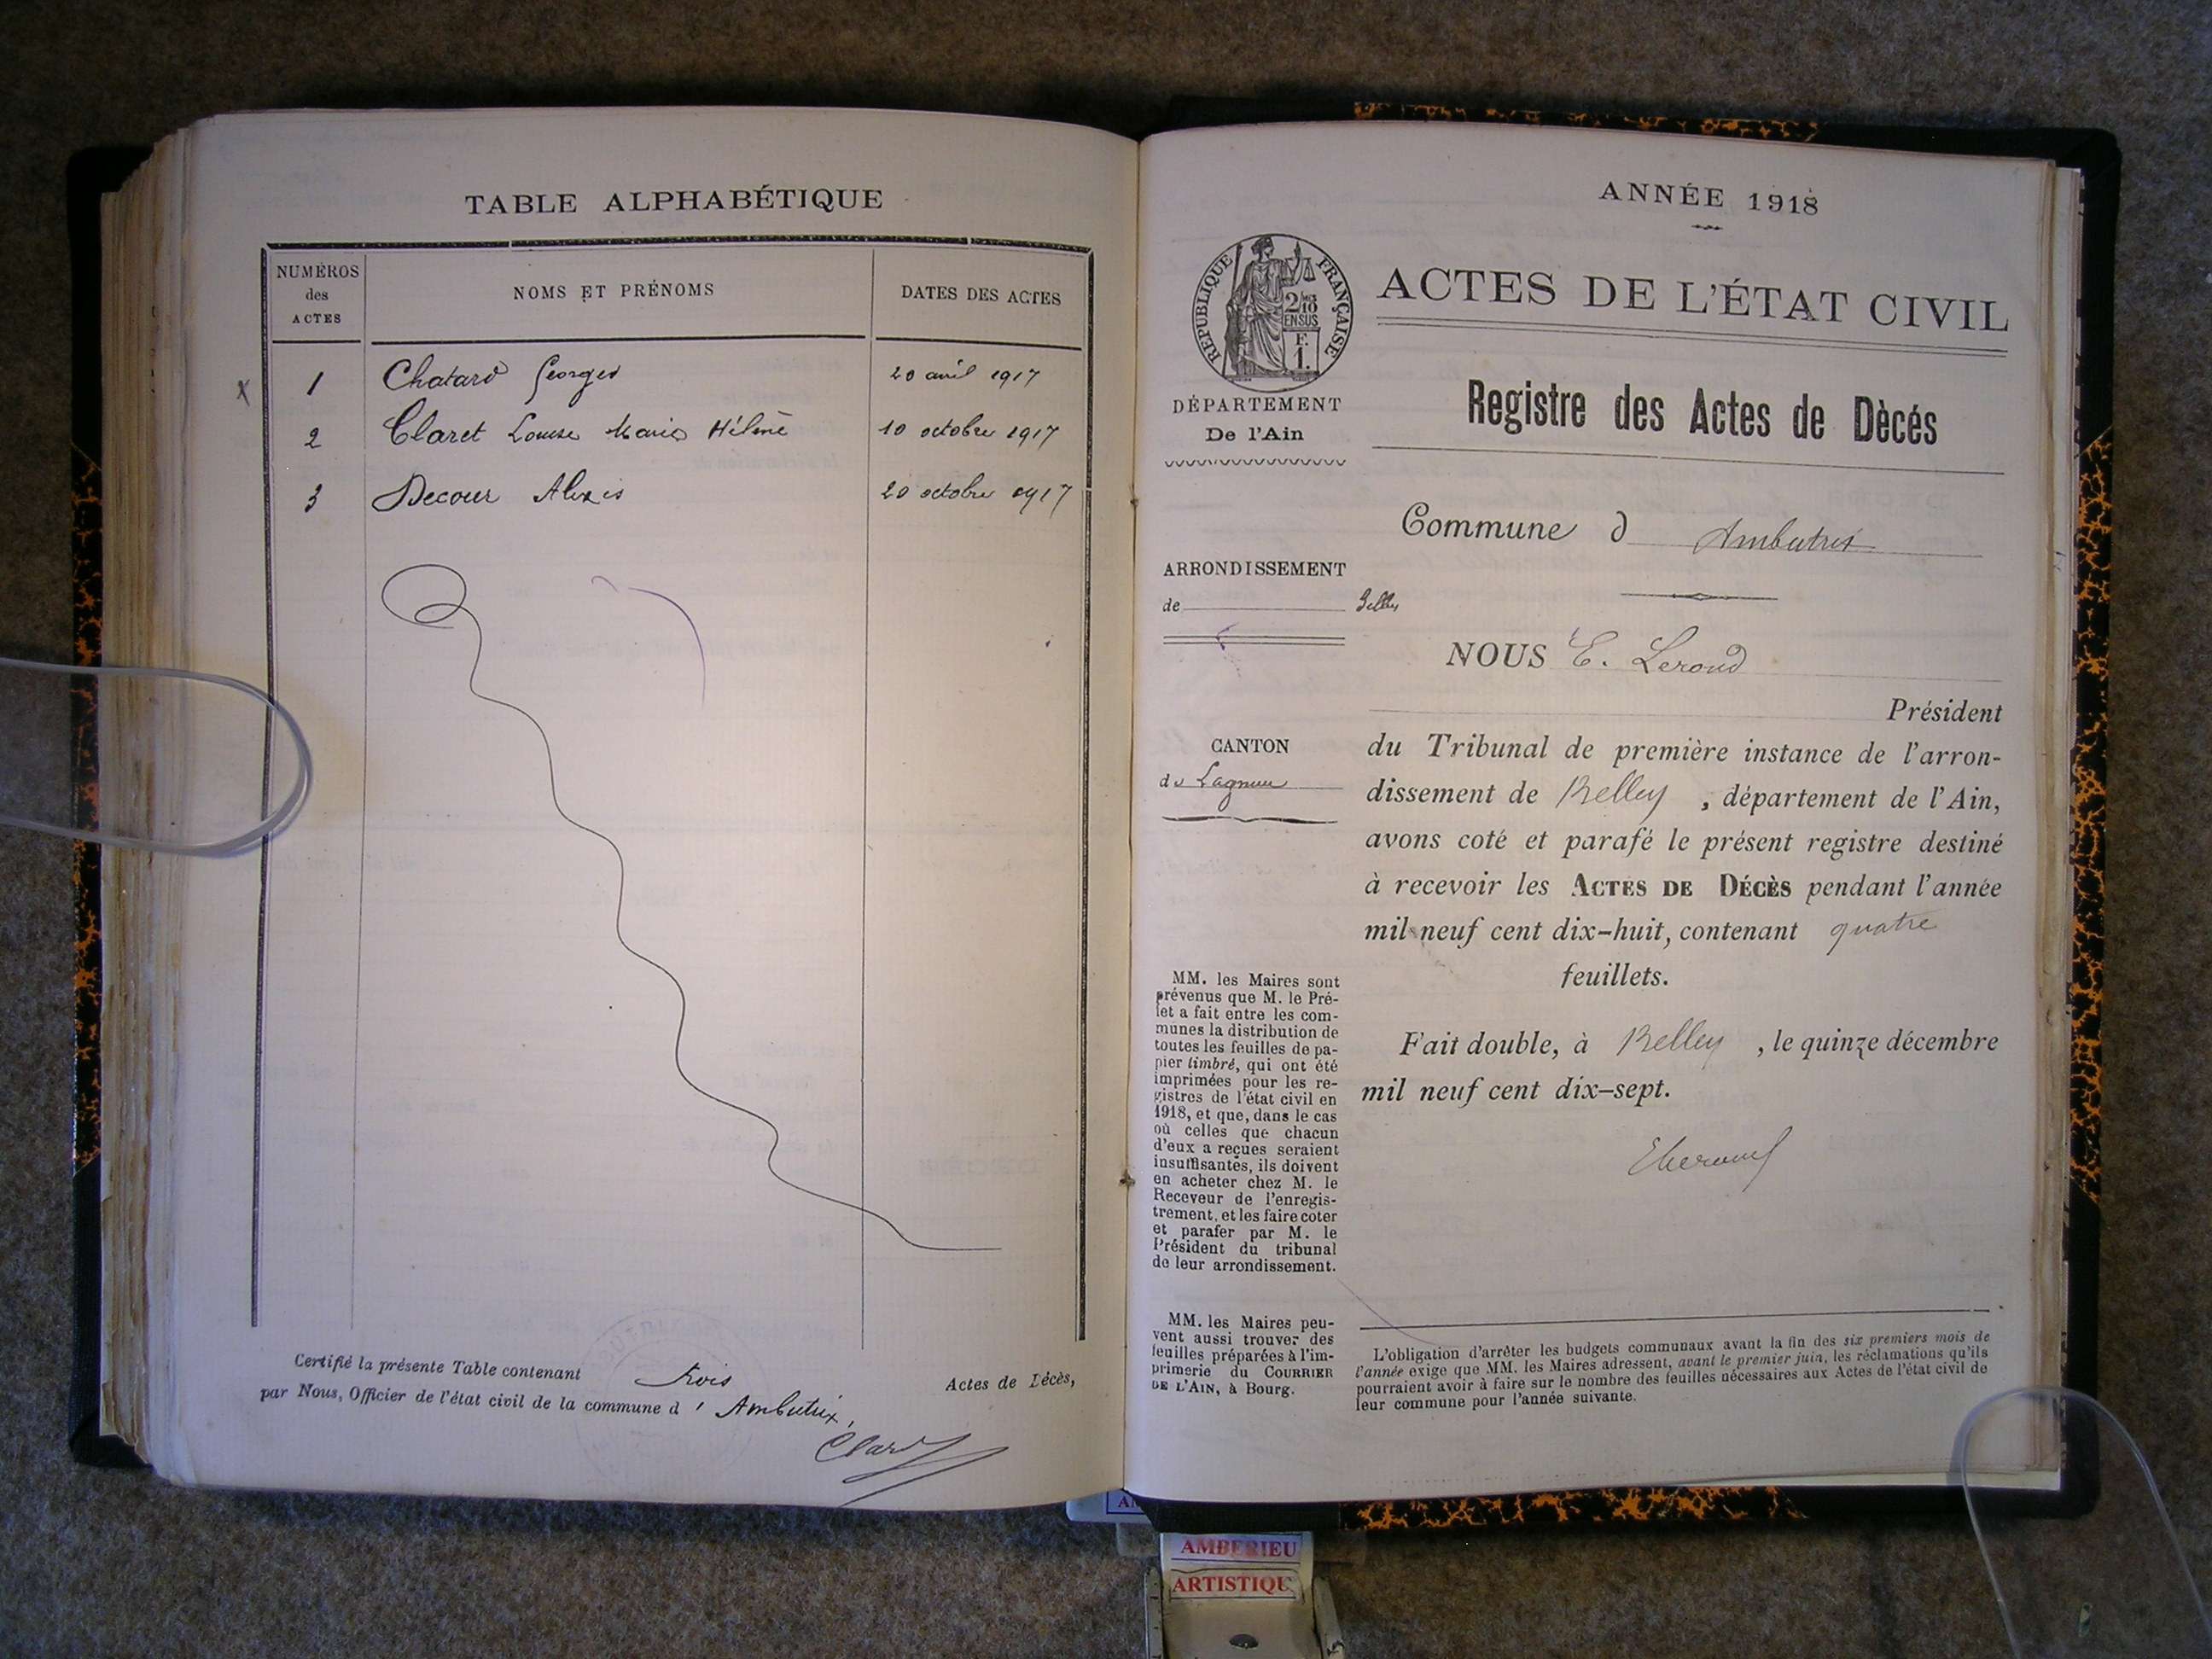 TABLE ALPHABÉTIQUE
NUMÉROS
des
ACTES
NOMS ET PRÉNOMS
DATES DES ACTES
X 1 Chatard Georges 20 avril 1917
2 Claret Louise Maria Hélène 10 octobre 1917
3 Decour Alexis 20 octobre 1917
Certifié la présente Table contenant trois Actes de Décès,
par Nous, Officier de l'état civil de la commune d' Ambutrix,
ANNÉE 1918
RÉPUBLIQUE FRANÇAISE
2/10
EN SUS
F.
1.
ACTES DE L'ÉTAT CIVIL
DÉPARTEMENT
De l'Ain
Registre des Actes de Dècés
Commune d Ambutrix
ARRONDISSEMENT
de Belley
NOUS E. Leroud
Président
CANTON
de Lagnieu
du Tribunal de première instance de l'arron-
dissement de Belley, département de l'Ain,
avons coté et parafé le présent registre destiné
à recevoir les ACTES DE DÉCÈS pendant l'année
mil neuf cent dix-huit, contenant quatre
feuillets.
Fait double, à Belley, le quinze décembre
mil neuf cent dix-sept.
MM. les Maires sont
prévenus que M. le Pré-
fet a fait entre les com-
munes la distribution de
toutes les feuilles de pa-
pier timbré, qui ont été
imprimées pour les re-
gistres de l'état civil en
1918, et que, dans le cas
où celles que chacun
d'eux a reçues seraient
insuffisantes, ils doivent
en acheter chez M. le
Receveur de l'enregis-
trement, et les faire coter
et parafer par M. le
Président du tribunal
de leur arrondissement.
MM. les Maires peu-
vent aussi trouver des
feuilles préparées à l'im-
primerie du COURRIER
DE L'AIN, à Bourg.
L'obligation d'arrêter les budgets communaux avant la fin des six premiers mois de
l'année exige que MM. les Maires adressent, avant le premier juin, les réclamations qu'ils
pourraient avoir à faire sur le nombre des feuilles nécessaires aux Actes de l'état civil de
leur commune pour l'année suivante.
AMBERIEU
ARTISTIQU